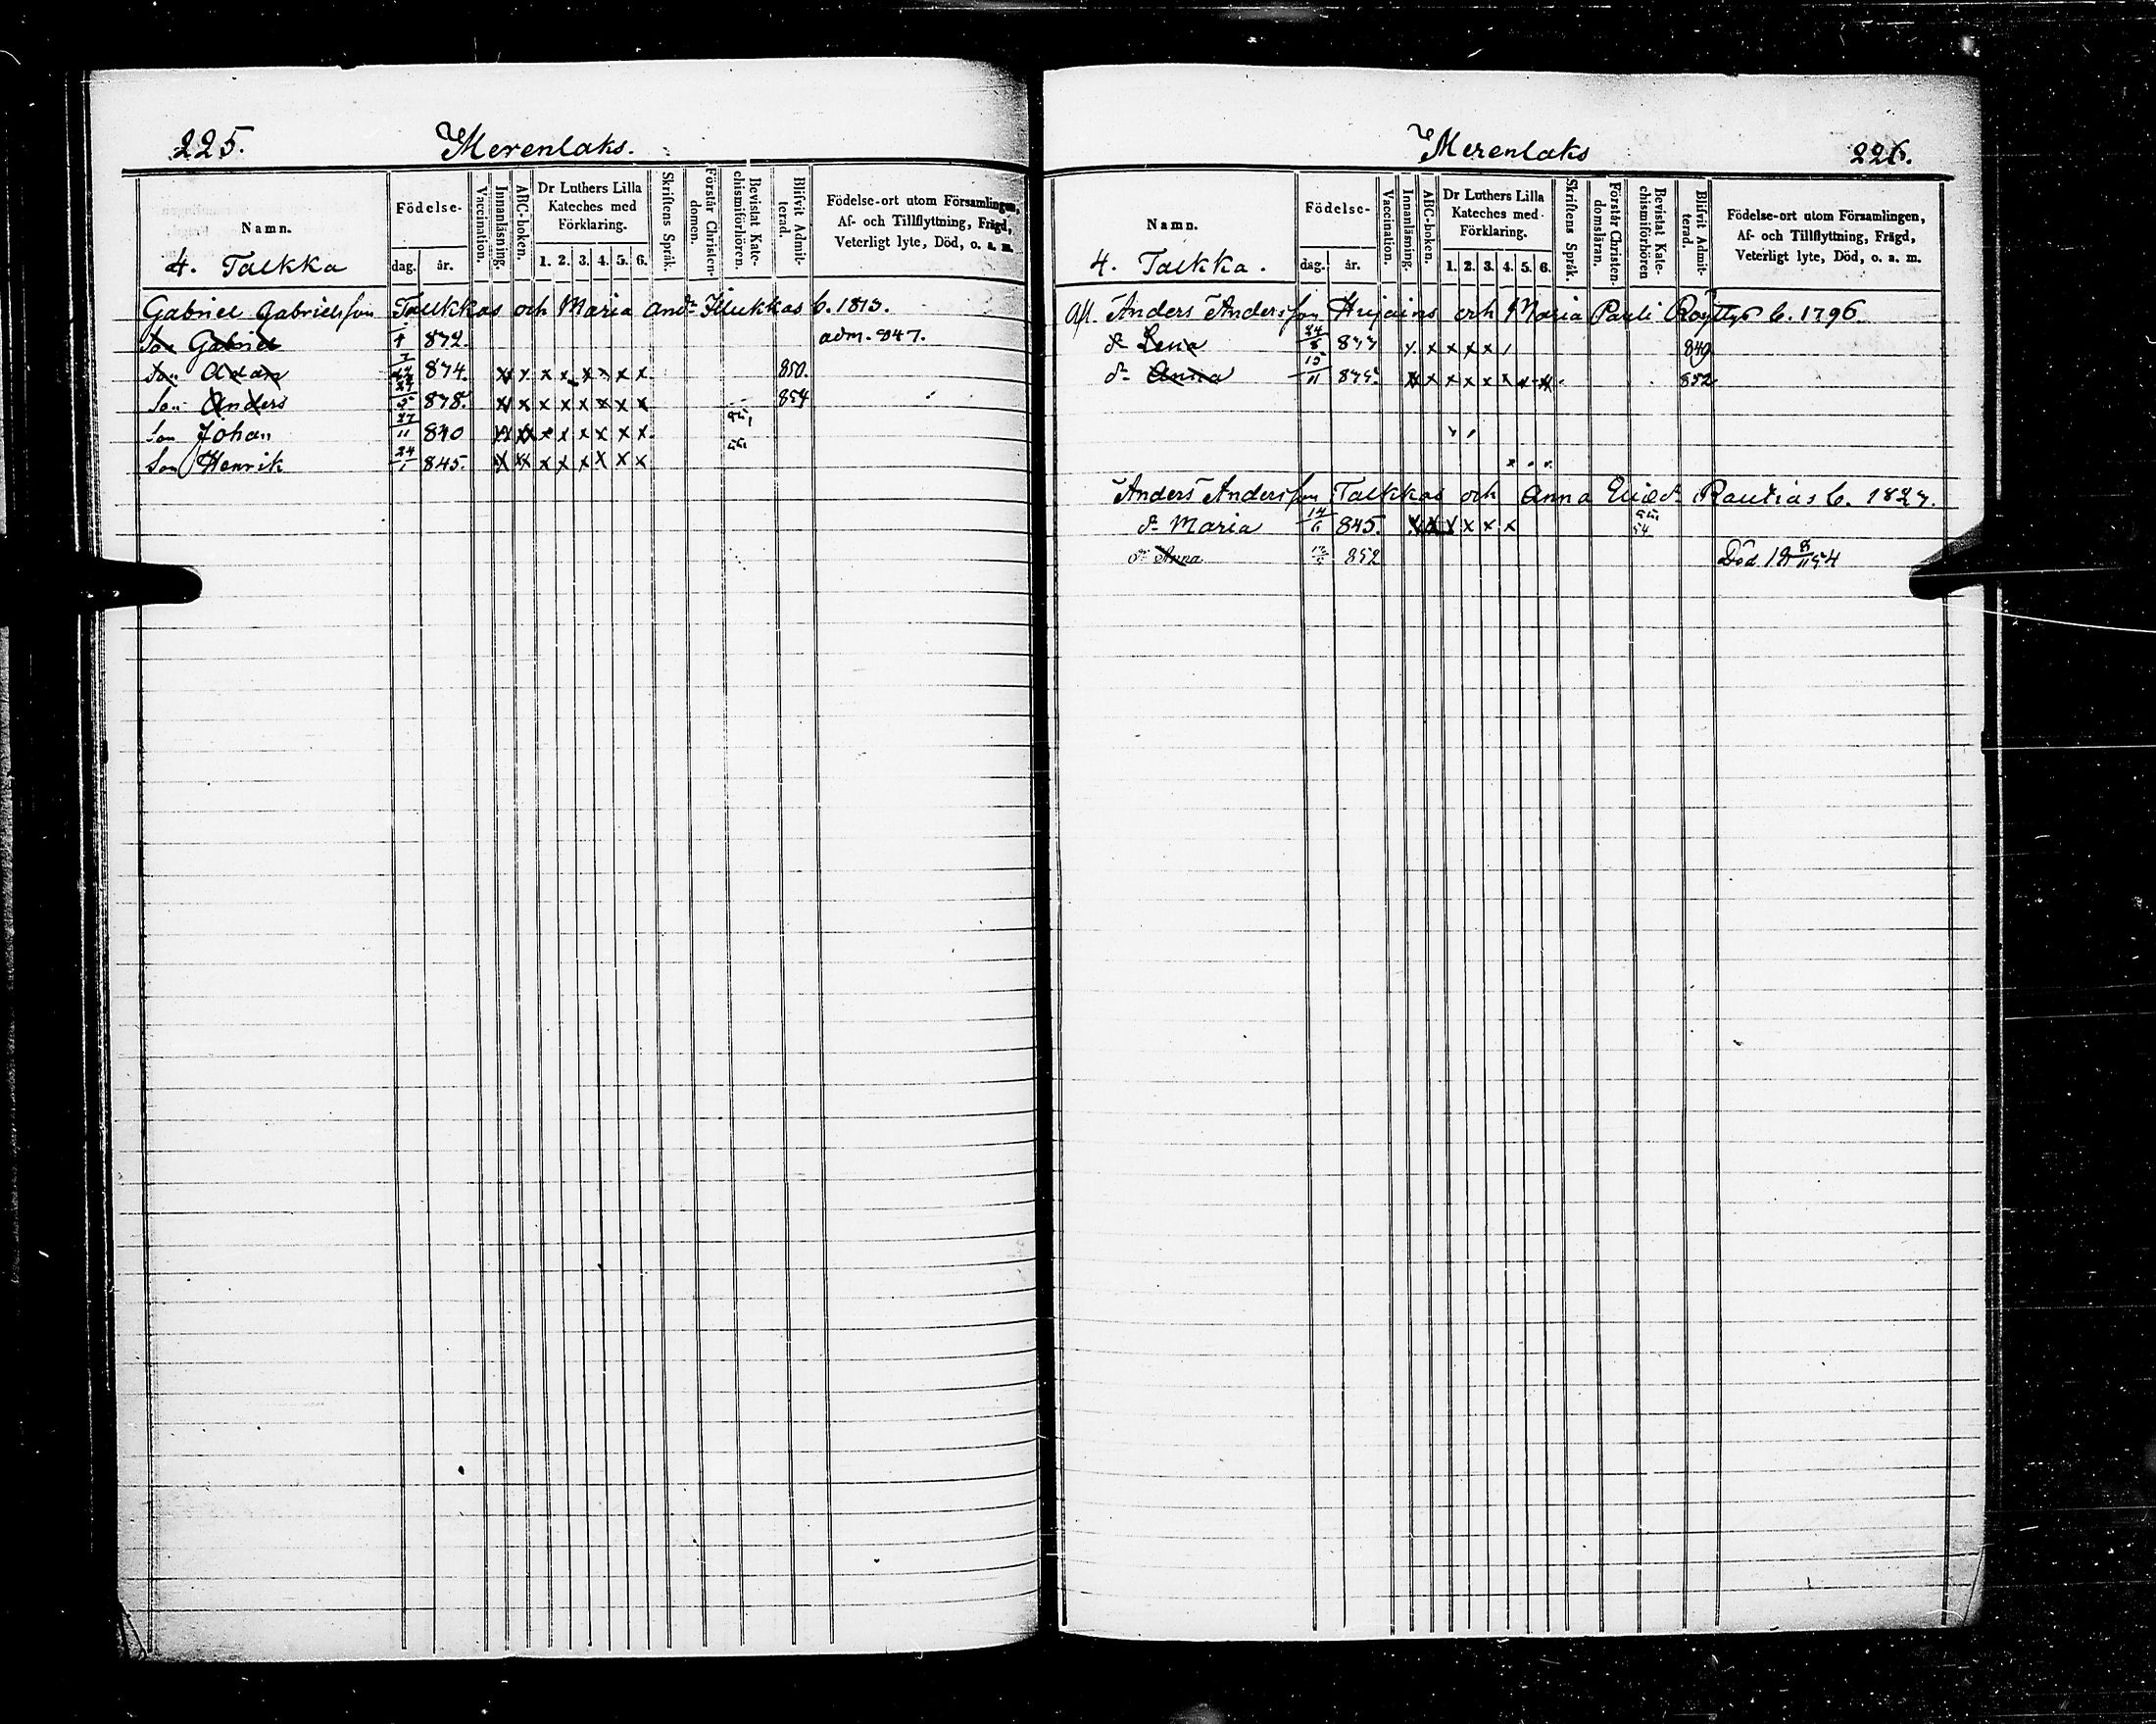 225. Merenlaks.
Namn.
Födelse-
dag. år.
Vaccination.
Innanläsning.
ABC-boken.
Dr Luthers Lilla Kateches med Förklaring.
1. 2. 3. 4. 5. 6.
Skriftens Språk.
Förstår Christen-domen.
Bevistat Kate-chismiförhören.
Blifvit Admit-terad.
Födelse-ort utom Församlingen,
Af- och Tillflyttning, Frägd,
Veterligt lyte, Död, o. a. m.
4. Talkka
Gabriel Gabrielsson Talkkas och Maria And:dr Illukkas b. 1813.
Son Gabriel 832. adm. 847.
Son Adam 834. x x x x x x x x 850.
Son Anders 838. x x x x x x x x 854
Son Johan 27/11 840 x x x x x x x x
Son Henrik 24/1 845. x x x x x x x x
Merenlaks 226.
Namn.
Födelse-
dag. år.
Vaccination.
Innanläsning.
ABC-boken.
Dr Luthers Lilla Kateches med Förklaring.
1. 2. 3. 4. 5. 6.
Skriftens Språk.
Förstår Christen-domsläran.
Bevistat Kate-chismiförhören
Blifvit Admit-terad.
Födelse-ort utom Församlingen,
Af- och Tillflyttning, Frägd,
Veterligt lyte, Död, o. a. m.
4. Talkka.
Afl. Anders Andersson och Maria Pauli b. 1796.
dr Lena 24/8 833 x x x x x 849
dr Anna 15/11 835. x x x x x x x x 852
Anders Andersson Talkkas och Anna Elied:r Rautias b. 1823.
dr Maria 14/6 845. x x x x x x 54
dr Anna 852 Död 18 8/11 54